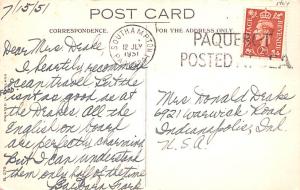 7/15/51
POST CARD
CORRESPONDENCE.
FOR THE ADDRESS ONLY.
SOUTHAMPTON
12 JLY
1951
PAQUEBOT
POSTED AT SEA
Dear Mrs. Drake
I heartily recommend
ocean travel but the
isn't as good as at
the Drakes. All the
English on board
are perfectly charming
but I can understand
them only half of the time
Barbara
Mrs Donald Drake
5921 Warwick Road
Indianapolis, Ind.
U.S.A.